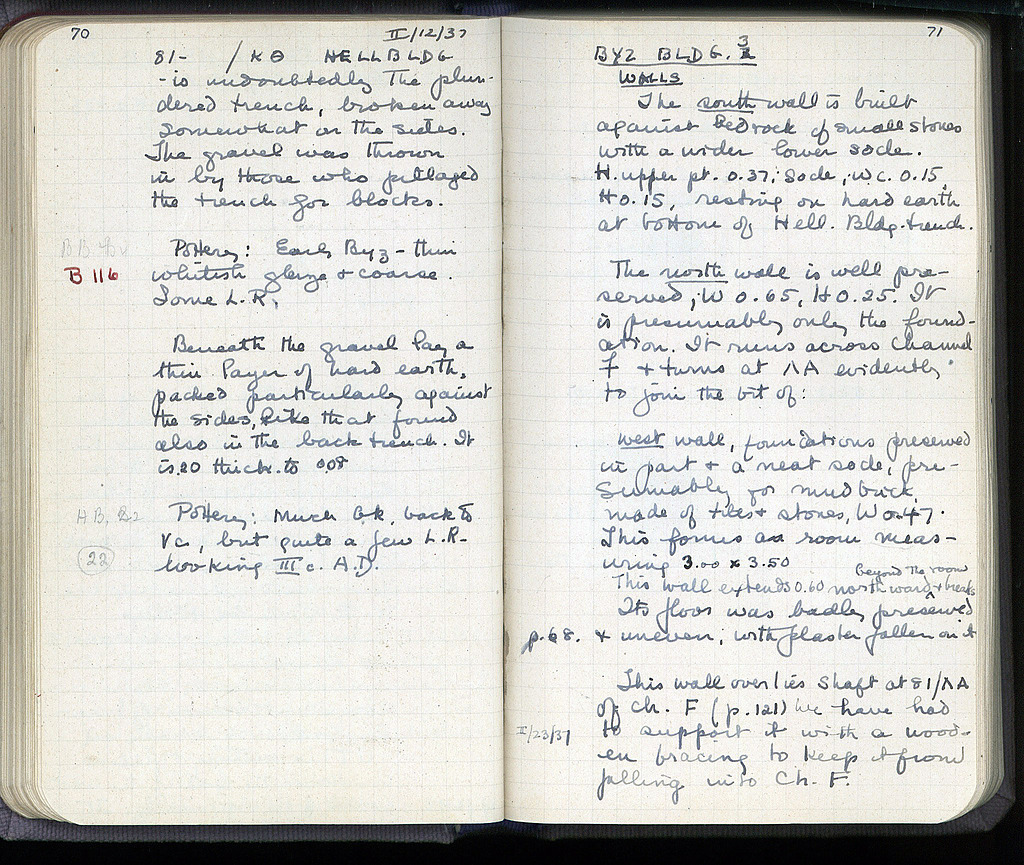 70
II/12/37
81- / ΚΘ HELL BLDG
- is undoubtedly the plun-
dered trench, broken away
somewhat on the sides.
The gravel was thrown
in by those who pillaged
the trench for blocks.
B 116
Pottery: Early Byz - thin
whitish glaze + coarse.
Some L.R.
Beneath the gravel lay a
thin layer of hard earth,
packed particularly against
the sides, like that found
also in the back trench. It
is .20 thick to 0.08
Pottery: Much Gk. back to
Vc., but quite a few L.R.
22
looking III c. A.D.
71
BYZ BLDG. 3
WALLS
The south wall is built
against bedrock of small stones
with a wider lower socle.
H. upper pt. 0.37; Socle, W c. 0.15,
H 0.15, resting on hard earth
at bottom of Hell. Bldg. trench.
The north wall is well pre-
served; W 0.65, H 0.25. It
is presumably only the found-
ation. It runs across Channel
F + turns at ΛΑ evidently
to join the bit of:
west wall, foundations preserved
in part + a neat socle, pre-
sumably for mud brick,
made of tiles + stones, W 0.47.
This forms a room meas-
uring 3.00 x 3.50
beyond the room
This wall extends 0.60 northward + breaks
Its floor was badly preserved
p. 68. + uneven, with plaster fallen on it
This wall overlies shaft at 81/ΛΑ
of Ch. F (p. 121) We have had
II/23/37 to support it with a wood-
en bracing to keep it from
falling into Ch. F.